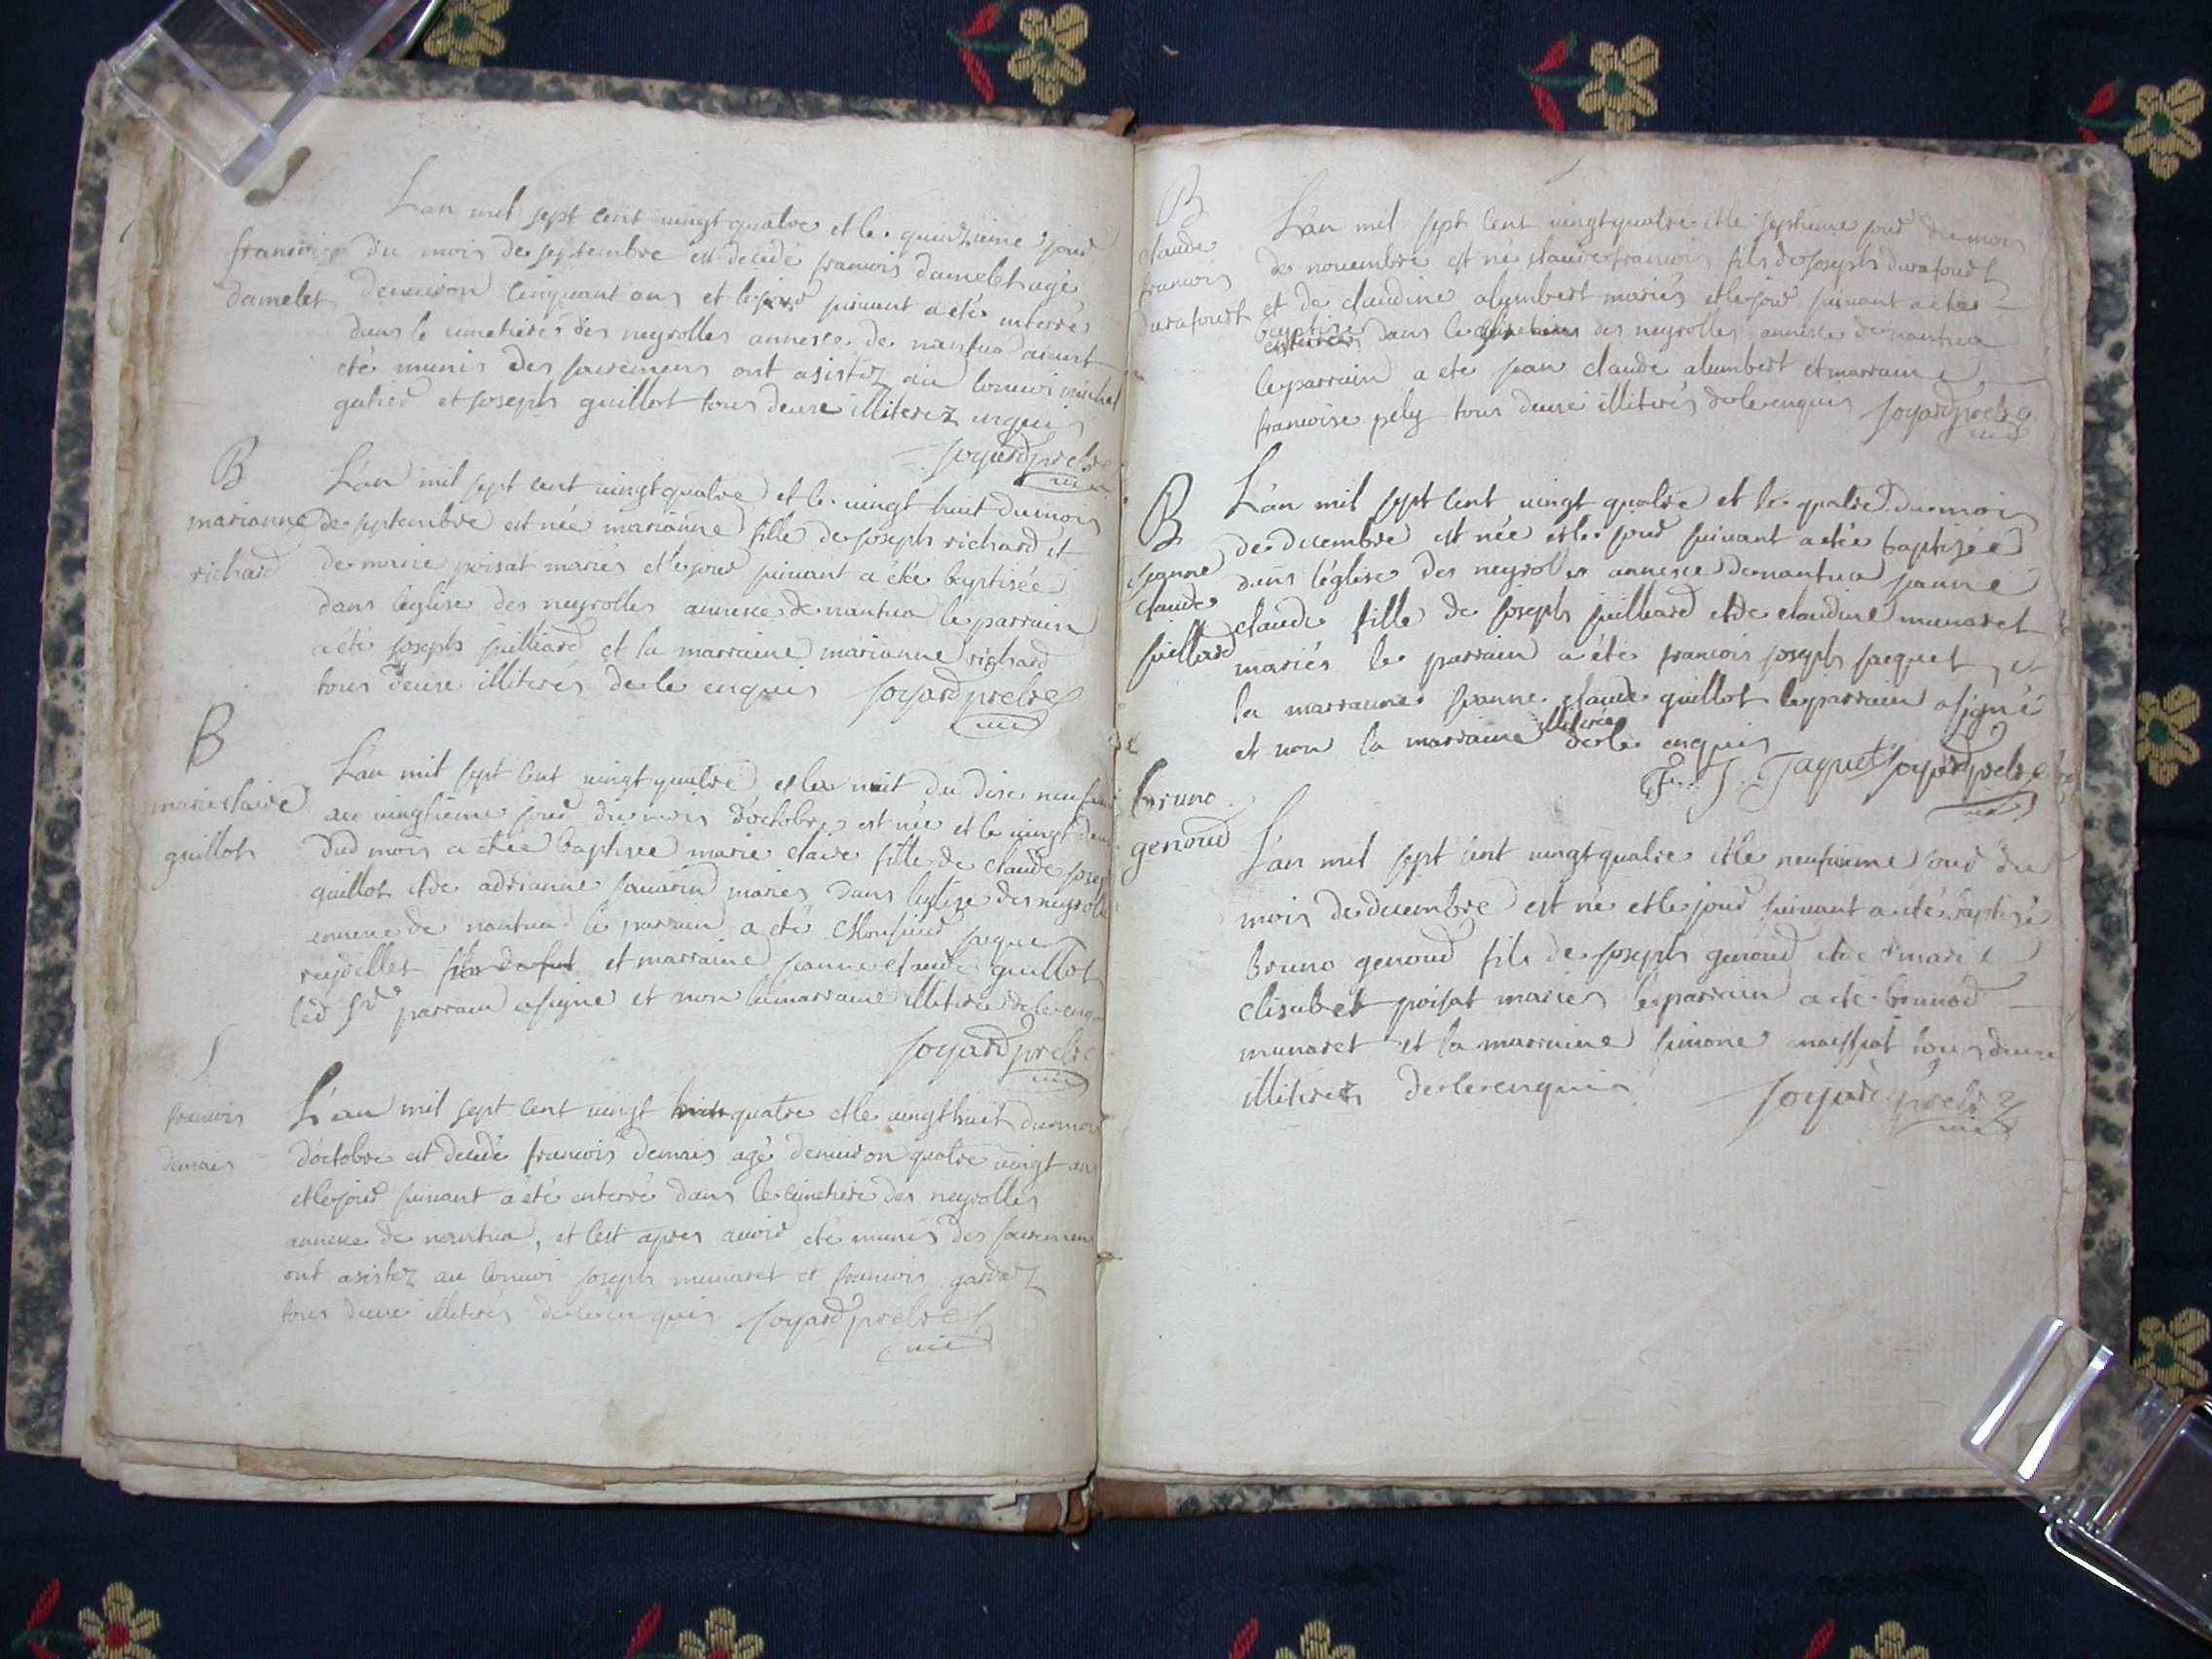 S
francois
damelet
L'an mil sept cent uingt quatre et le quinzieme jour
du mois de septembre est decedé francois damelet agé
denuiron cinquant ans et le jour suiuant a eté interré
dans le cimetiere des neyrolles annexe de nantua aiant
eté munis des sacremens ont asistez au conuoi michel
et joseph guillot tous deux illiterez enquis
soyard prebre
B
marianne
richard
L'an mil sept cent uingt quatre et le uingt huit du mois
de septembre est née marianne fille de joseph richard et
de marie poisat mariés et le jour suiuant a été baptisée
dans leglise des neyrolles annexe de nantua le parrain
a eté joseph juilliard et la marraine marianne richard
tous deux illiterés de le enquis soyard prebre
B
marie claire
guillot
L'an mil sept cent uingt quatre et la nuit du dix neufu
au uingtieme jour du mois d'octobre est née et le uingt
dud mois a etée baptisee marie claire fille de claude
guillot et de adrianne sauarin mariés dans leglise des neyrolle
annexe de nantua le parrain a eté Monsieur jacque
reydellet et marraine janne claude guillot
led sr parrain a signé et non la marraine illiterée de le enq
soyard prebre
S
francois
demais
L'an mil sept cent uingt quatre et le uingt huit du mois
d'octobre est decedé francois demais agé denuiron quatre uingt ans
et le jour suiuant a eté enterré dans le cimetiere des neyrolles
annexe de nantua, et cest apres auoir eté munis des sacremen
ont asistez au conuoi joseph munaret et francois
tous deux illiterés de le enquis soyard prebre
B
claude
francois
durafourt
L'an mil sept cent uingt quatre et le septieme jour du mois
de nouembre est né claude francois fils de joseph durafourt
et de claudine alumbert mariés et le jour suiuant a eté
baptisé
dans leglise des neyrolles annexe de nantua
le parrain a eté jean claude alumbert et marraine
francoise pely tous deux illiterés de le enquis soyard prebre
B
janne
claude
juillard
L'an mil sept cent uingt quatre et le quatre du mois
de decembre est née et le jour suiuant a etée baptisée
dans l'église des neyrolles annexe de nantua janne
claude fille de joseph juilliard et de claudine munaret
mariés le parrain a été francois joseph jacquet et
la marraine janne claude guillot le parrain a signé
et non la marraine illiterée de le enquis
F. J. Jaquet soyard prebre
bruno
genoud
L'an mil sept cent uingt quatre et le neufuieme jour du
mois de decembre est né et le jour suiuant a eté baptisé
bruno genoud fils de joseph genoud et de marie
elisabet poisat mariés le parrain a eté brunod
munaret et la marraine simone maissiat tous deux
illiterés de le enquis soyard prebre